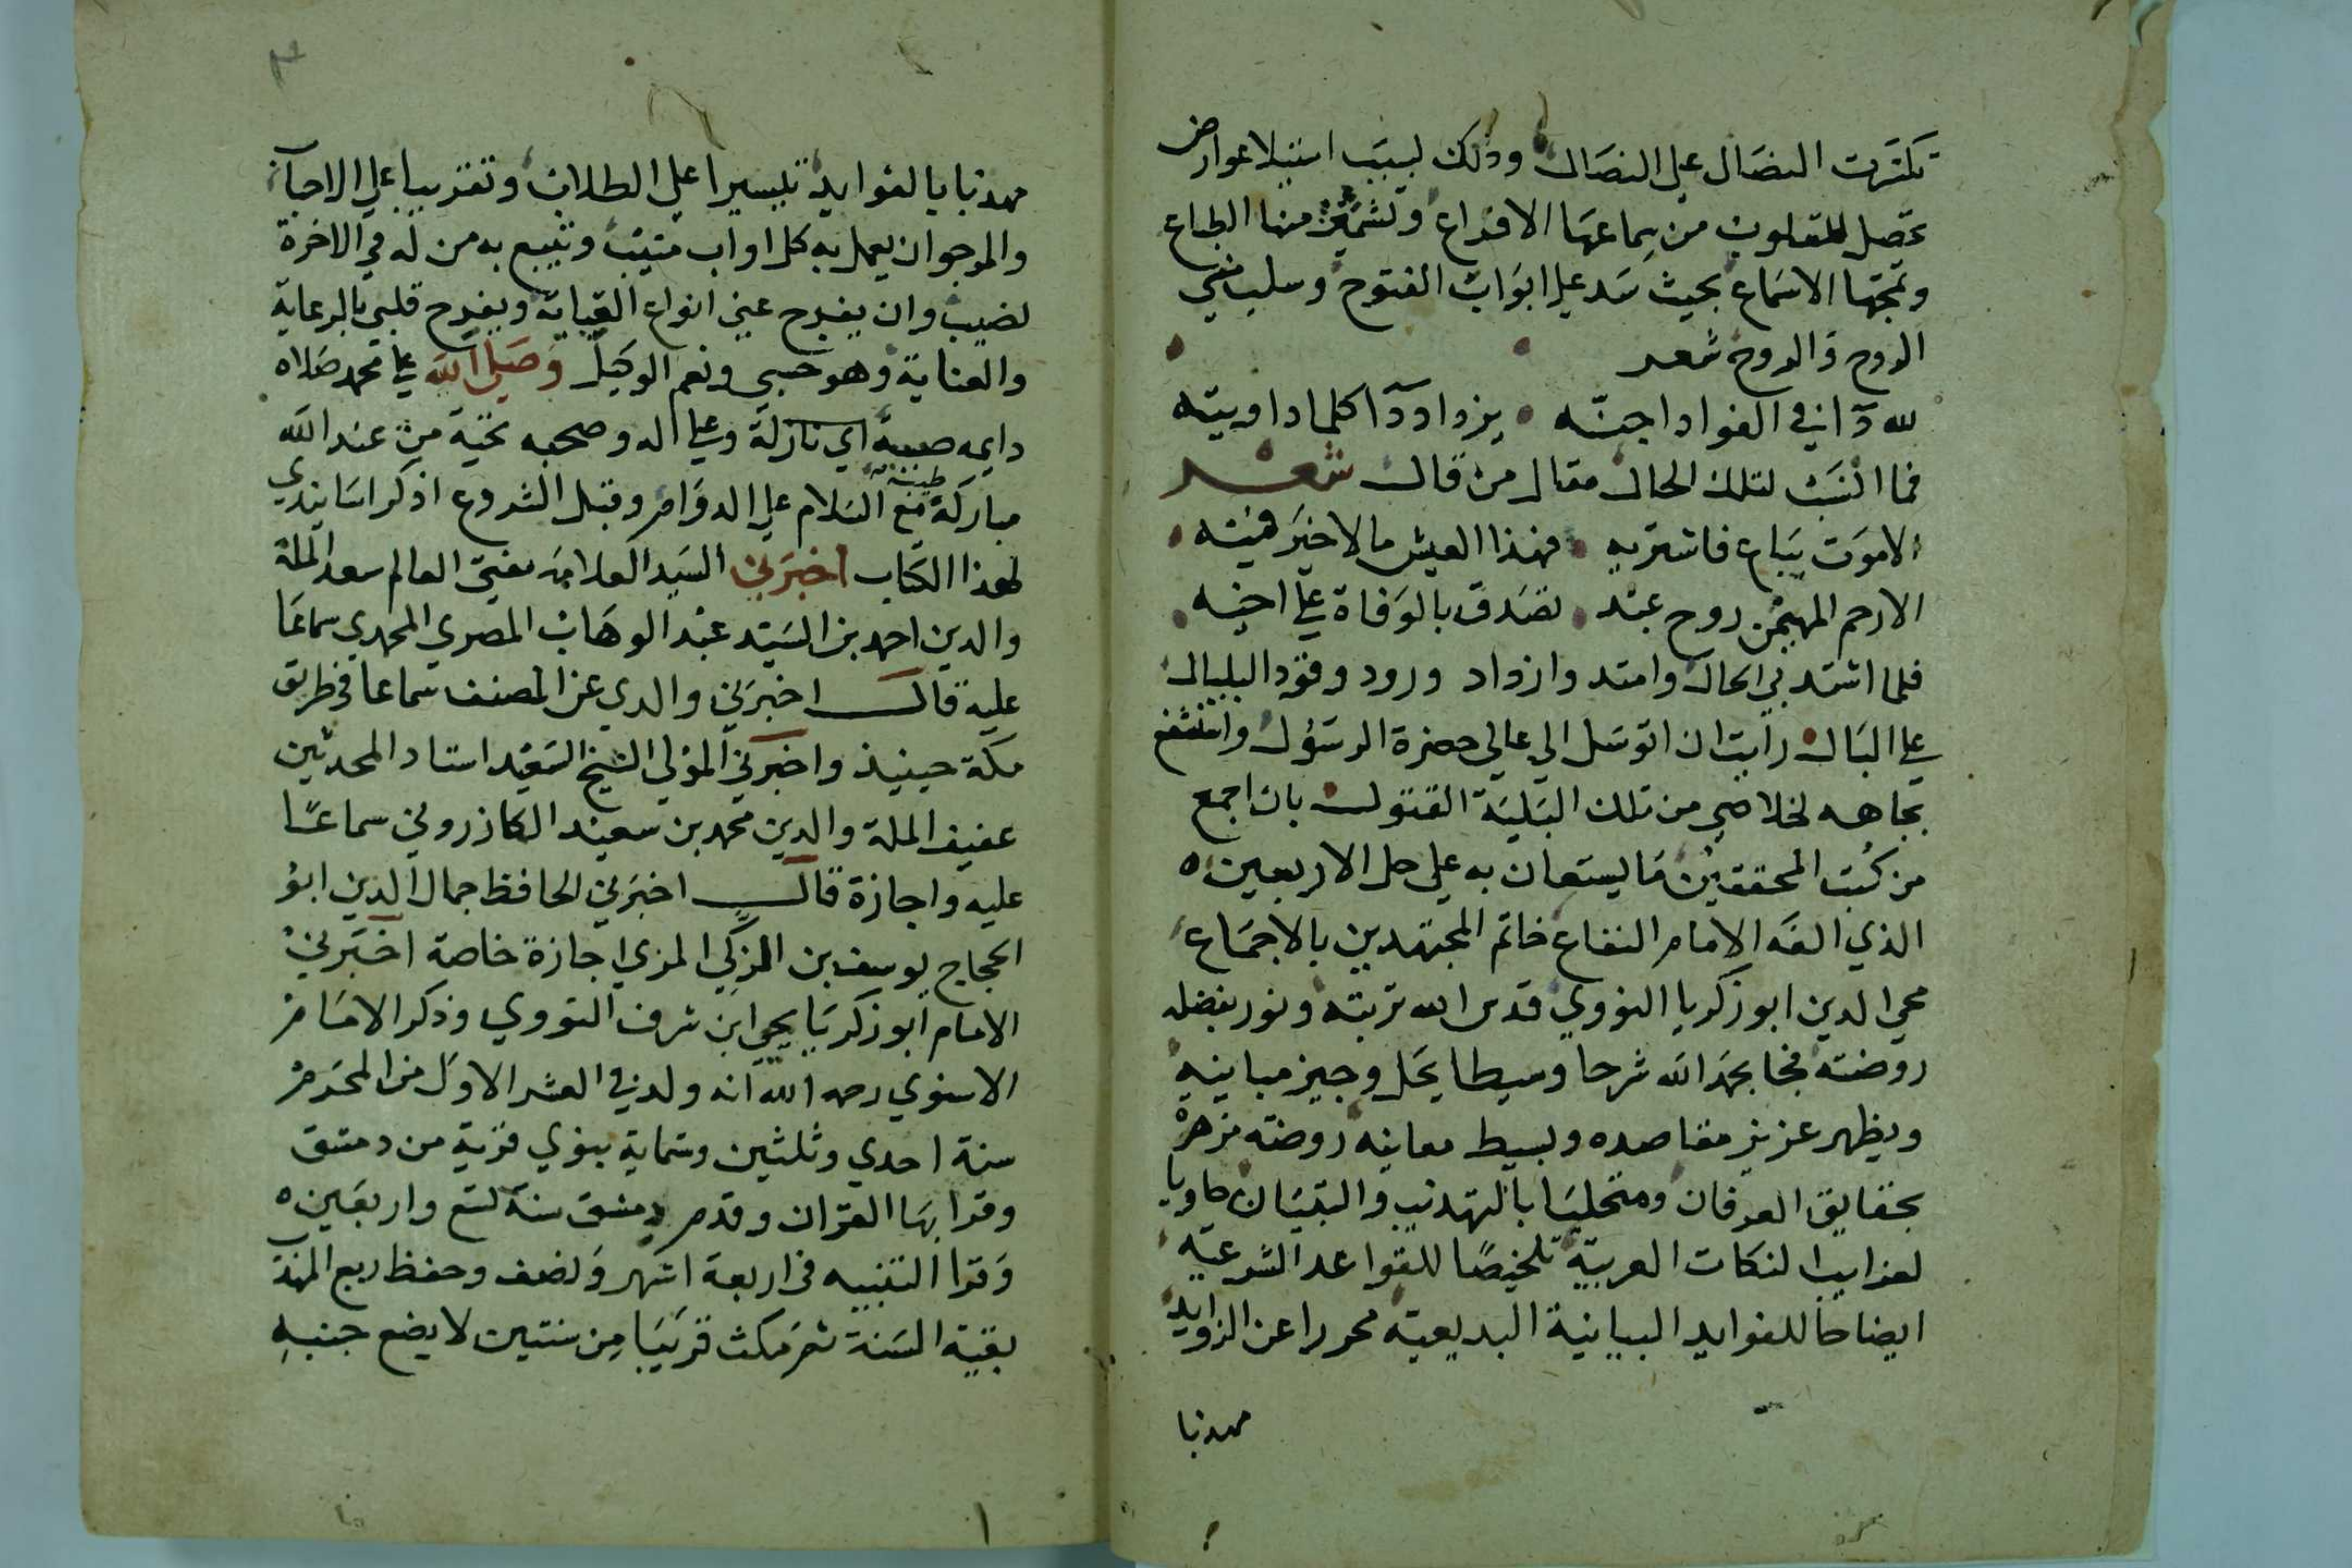 تكسرت النصال علي النصال وذلك لسبب استيلا عوارض
تحصل للقلوب من سماعها الاقداع وتشمئز منها الطباع
وتمجها الاسماع بحيث سد علي ابواب الفتوح وسلب مني
الروح والروح شعر
لله دآ في الفواد اجنه يزداد دآا كلما داويته
فما انسب لتلك الحال مقال من قال شعر
الا موت يباع فاشتريه فهذا العيش ما لا خير فيه
الا رحم المهيمن روح عبد تصدق بالوفاة علي اخيه
فلما اشتد بي الحال وامتد وازداد ورود وفود البلبال
علي البال رايت ان اتوسل الي عالي حضرة الرسول واستشفع
بجاهه لخلاصي من تلك البلية القتول بان اجمع
من كتب المحققين ما يستعان به علي حل الاربعين
الذي الفه الامام النفاع خاتم المجتهدين بالاجماع
محي الدين ابو زكريا النووي قدس الله تربته ونور بفضله
روضته فجا بحمد الله شرحا وسيطا يحل وجيز مبانيه
ويظهر عزيز مقاصده وبسيط معانيه روضته مزهرة
بحقايق العرفان ومتحليا بالتهذيب والتبيان حاويا
لغرايب النكات العربية تلخيصا للقواعد الشرعية
ايضاحا للفوايد البيانية البديعية محررا عن الزوايد
مهذبا
مهذبا بالفوايد تيسيرا علي الطلاب وتقريبا علي الاحبآ
والمرجو ان يعمل به كل اواب منيب وينتفع به من له في الاخرة
نصيب وان يفرج عني انواع ويفرح قلبي بالرعاية
والعناية وهو حسبي ونعم الوكيل وصلي الله علي محمد صلاه
دايمه صيبة اي نازلة وعلي اله وصحبه تحية من عند الله
مباركة طيبة مع السلام علي الدوام وقبل الشروع اذكر اسانيدي
لهذا الكتاب اخبرني السيد العلامه مفتي العالم سعد الملة
والدين احمد بن السيد عبد الوهاب المصري المحمدي سماعا
عليه قال اخبرني والدي عن المصنف سماعا في طريق
مكة حينيذ واخبرني المولي الشيخ السعيد استاد المحدثين
عفيف الملة والدين محمد بن سعيد الكازروني سماعا
عليه واجازة قال اخبرني الحافظ جمال الدين ابو
الحجاج يوسف بن الزكي المزي اجازة خاصة اخبرني
الامام ابو زكريا يحيي ابن شرف النووي وذكر الامام
الاسنوي رحمه الله انه ولد في العشر الاول من المحرم
سنة احدي وثلثين وستماية بنوي قرية من دمشق
وقرا بها القران وقدم دمشق سنة تسع واربعين
وقرا التنبيه في اربعة اشهر ونصف وحفظ ربع المهذب
بقية السنة ثم مكث قريبا من سنتين لا يضع جنبه